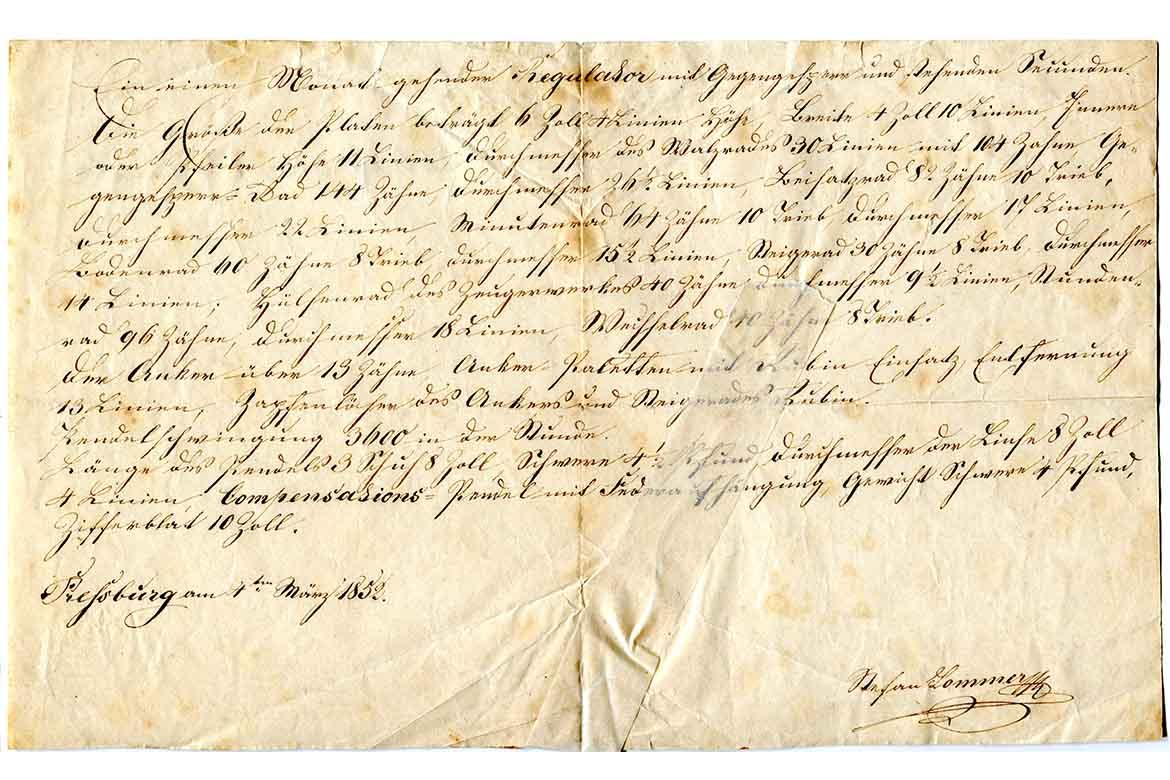 Ein einen Monat gehender Regulator mit Gegengesperr und stehenden Secunden.
Die Größe der Platen beträgt 6 Zoll 4 Linien Höhe, Breite 4 Zoll 10 Linien, Innere
oder Pfeiler Höhe 11 Linien, Durchmesser des Walzrades 30 Linien mit 104 Zähne Ge-
gengesperr-Rad 144 Zähne, Durchmesser 26½ Linien, Beisatzrad 82 Zähne 10 Trieb,
Durchmesser 22 Linien, Minutenrad 64 Zähne 10 Trieb Durchmesser 17 Linien,
Bodenrad 60 Zähne 8 Trieb Durchmesser 15½ Linien, Steigerad 30 Zähne 8 Trieb. Durchmesser
14 Linien; Hülsenrad des Zeugerwerkes 40 Zähne, Durchmesser 9½ Linien, Stunden-
rad 96 Zähne, Durchmesser 18 Linien, Wechselrad 40 Zähne 8 Trieb.
Der Anker über 13 Zähne Anker-Paletten mit Rubin Einsatz, Entfernung
13 Linien, Zapfenlöcher des Ankers und Steigerades Rubin.
Pendelschwingung 3600 in der Stunde.
Länge des Pendels 3 Schuh 8 Zoll, Schwere 4½ Pfund, Durchmesser der Linse 8 Zoll
4 Linien, Compensations-Pendel mit Federaufhängung, Gewicht Schwere 4 Pfund,
Zifferblat 10 Zoll.
Preßburg am 4ten März 1852.
Stefan Lommer